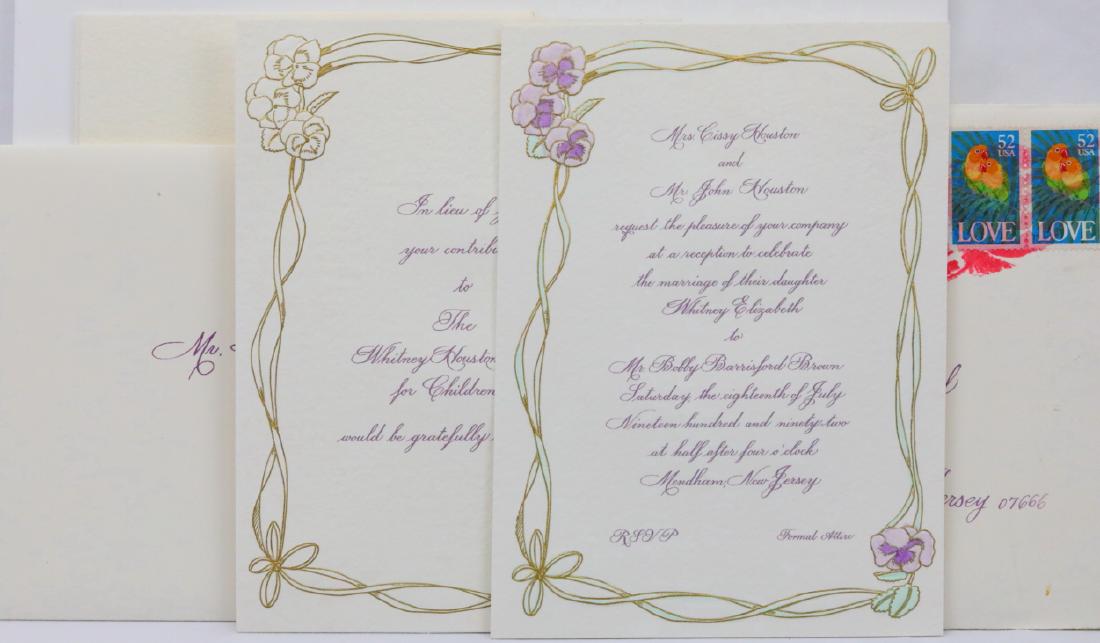 Mr.
In lieu of
your
to
The
Whitney Houston
for Children
would be gratefully
Mrs. Cissy Houston
and
Mr. John Houston
request the pleasure of your company
at a reception to celebrate
the marriage of their daughter
Whitney Elizabeth
to
Mr. Bobby Barrisford Brown
Saturday, the eighteenth of July
Nineteen hundred and ninety-two
at half after four o'clock
Mendham, New Jersey
RSVP
Formal Attire
52
USA
LOVE
52
USA
LOVE
ersey 07666